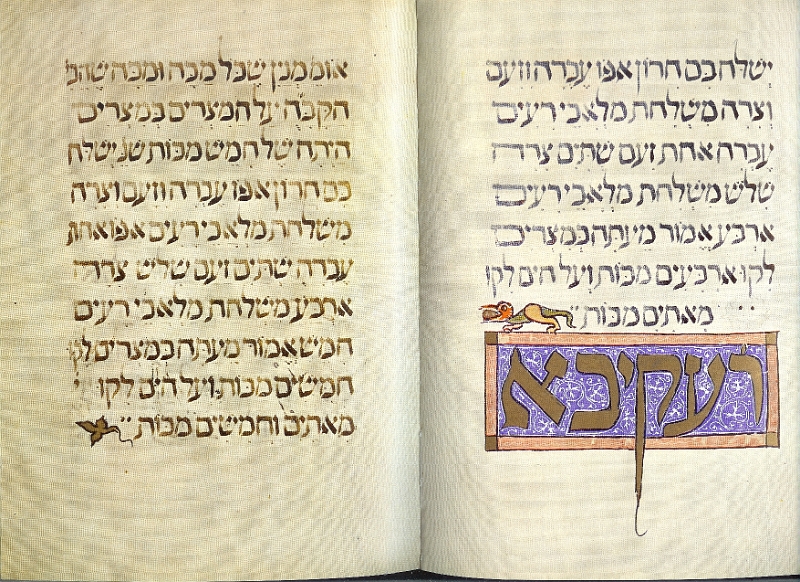 ישלח בם חרון אפו עברה וזעם
וצרה משלחת מלאכי רעים
עברה אחת זעם שתים צרה
שלש משלחת מלאכי רעים
ארבע אמור מעתה במצרים
לקו ארבעים מכות ועל הים לקו
מאתים מכות
ר עקיבא
אומ מנין שכל מכה ומכה שהבי
הקבה על המצרים במצרים
היתה של חמש מכות שנ ישלח
בם חרון אפו עברה וזעם וצרה
משלחת מלאכי רעים אפו אחת
עברה שתים זעם שלש צרה
ארבע משלחת מלאכי רעים
חמש אמור מעתה במצרים לקו
חמשים מכות ועל הים לקו
מאתים וחמשים מכות